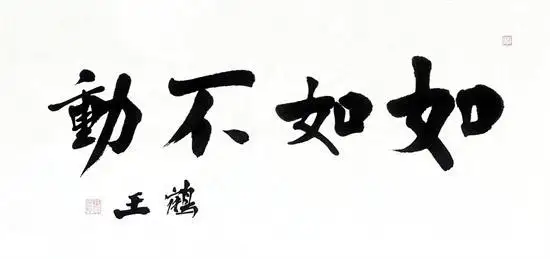 如如不動
鶴王